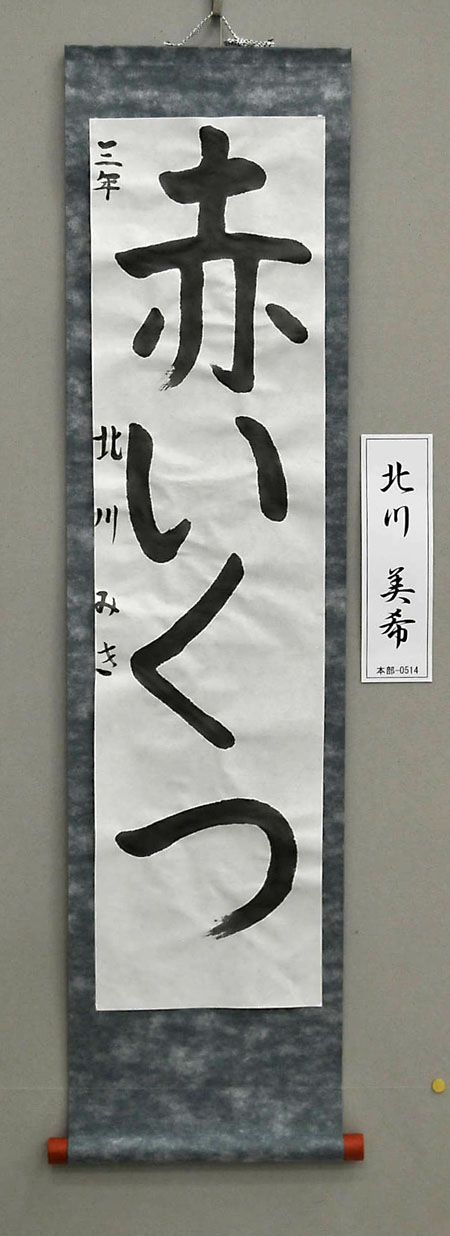 赤いくつ
三年
北川みき
北川 美希
本部-0514